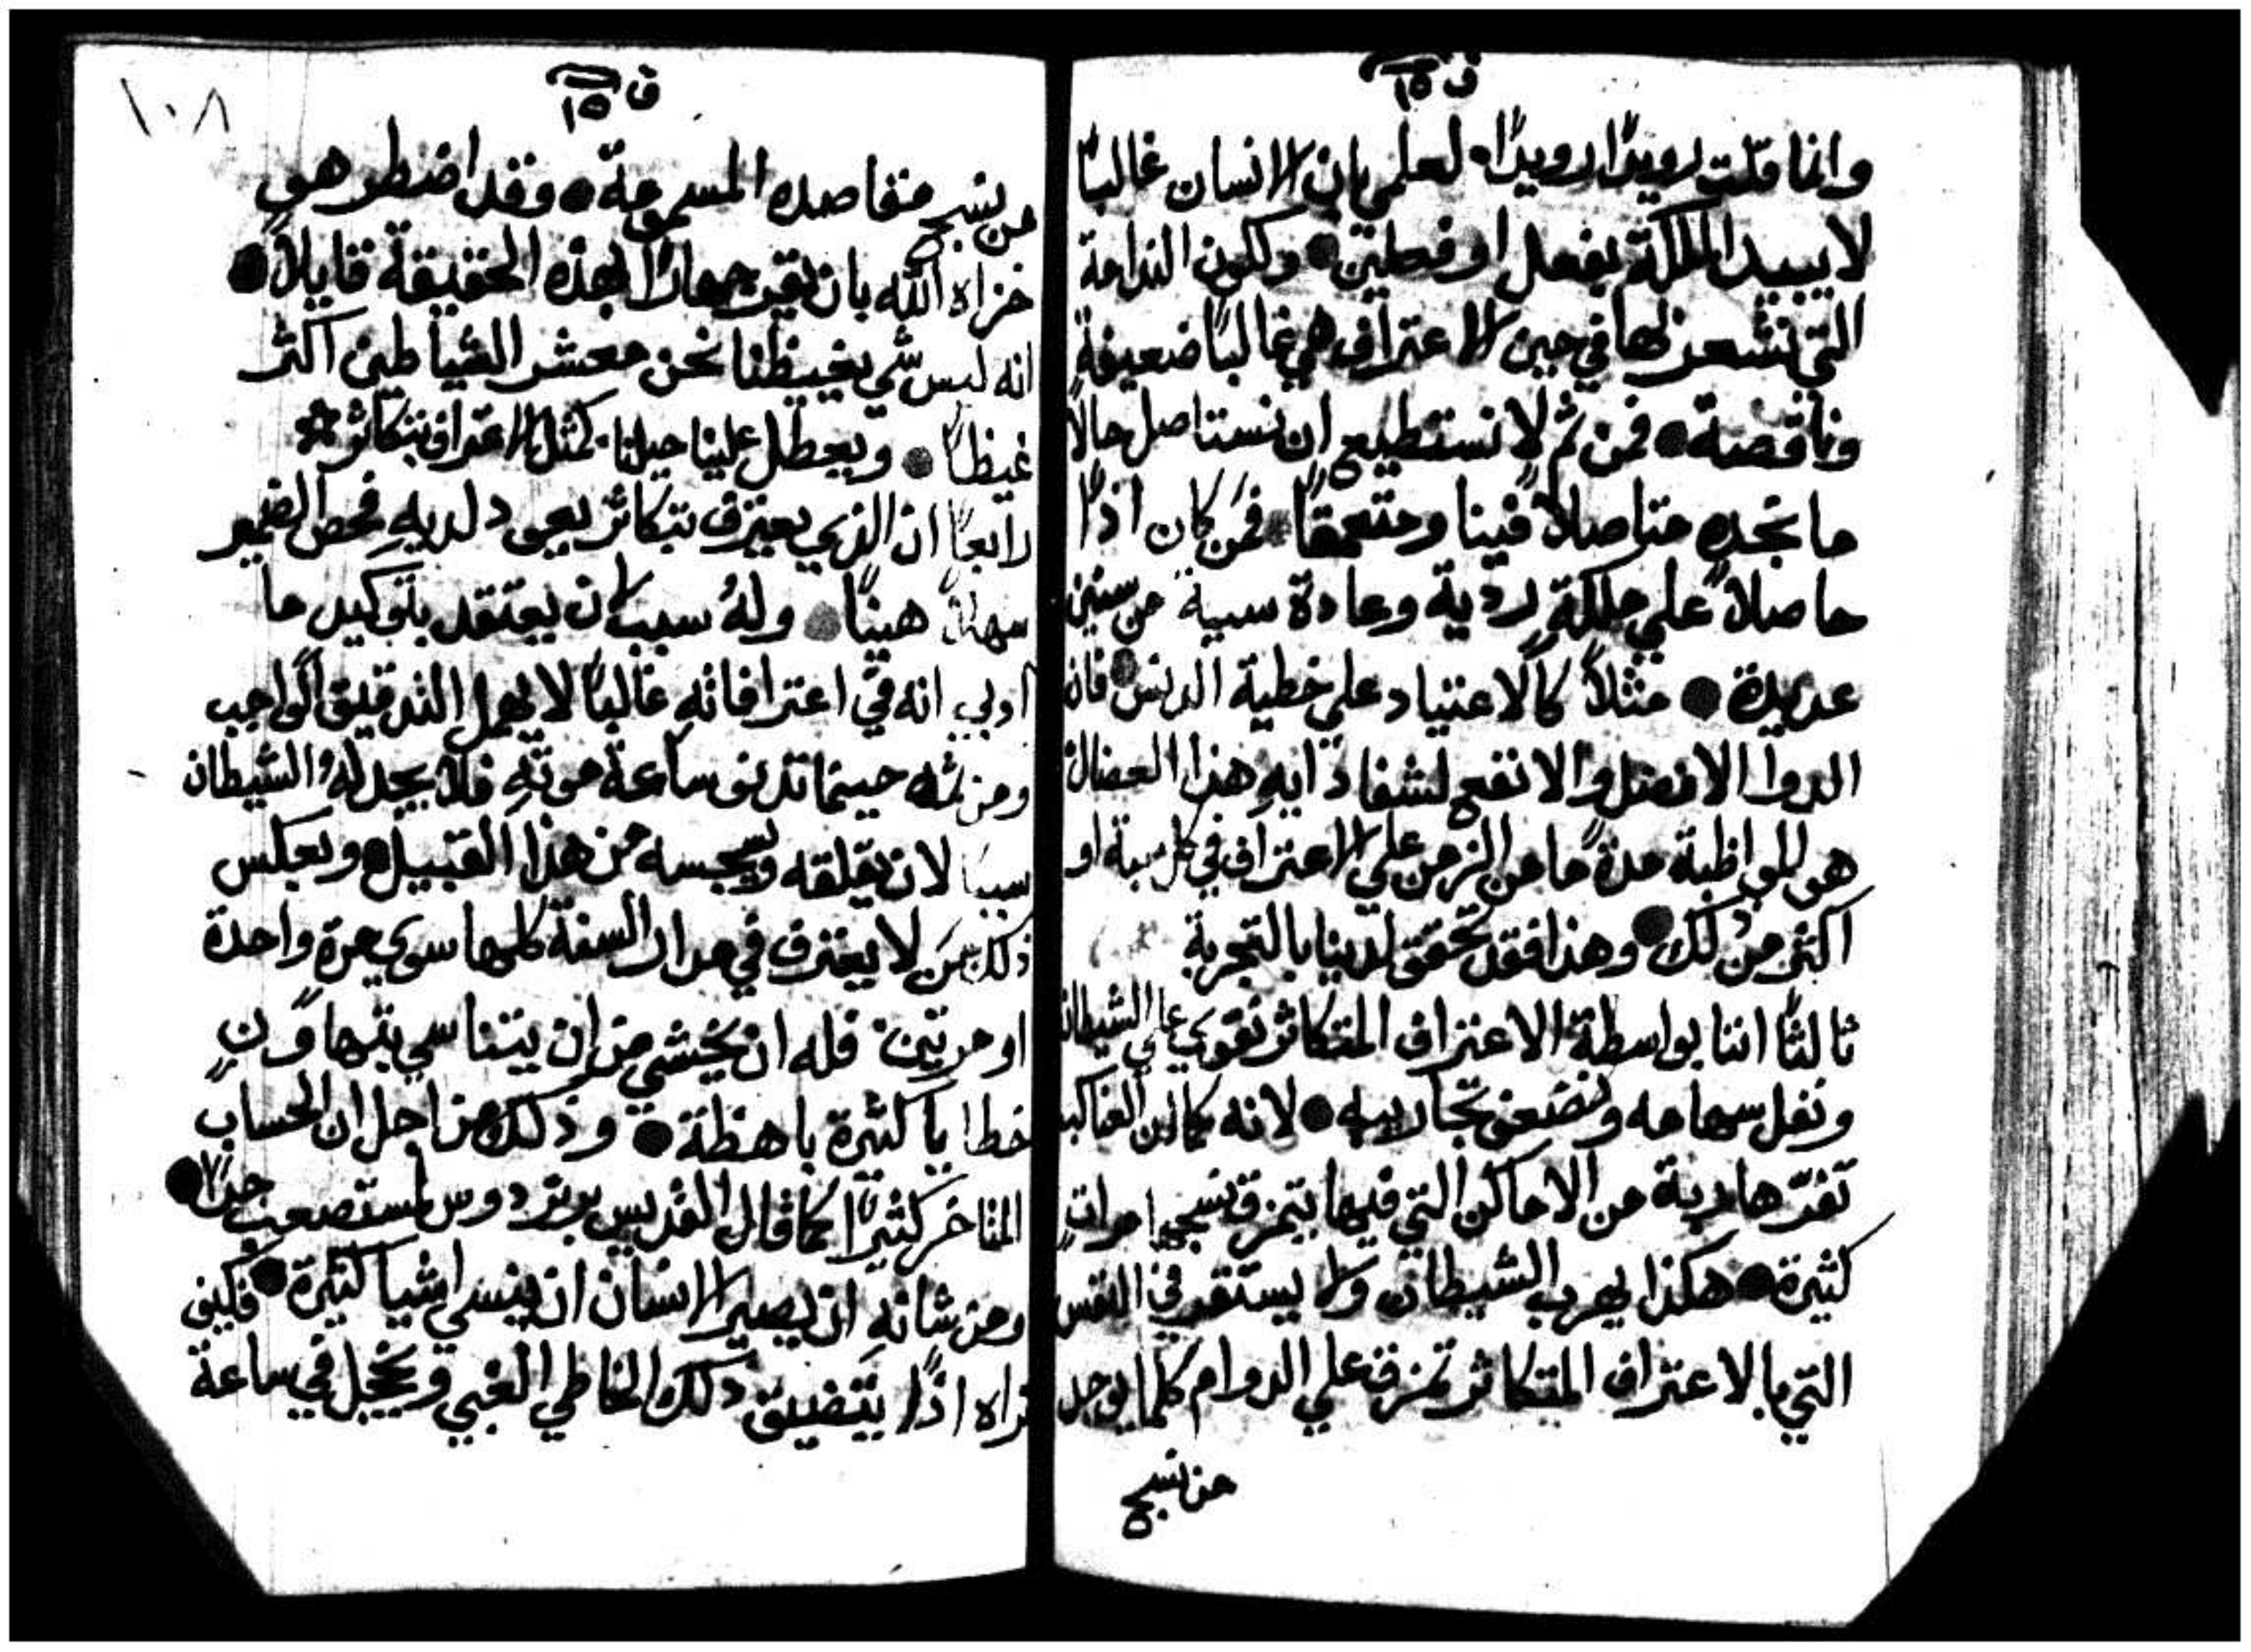 ف ١٥
وانما قلت رويدًا رويدًا • لعلمي بان الانسان غالبًا
لا يبيد الملكة بفعل او فعلين • ولكون الندامة
التي نشعر بها في حين الاعتراف هي غالبًا ضعيفة
وناقصة • فمن ثم لا نستطيع ان نستاصل حالًا
ما نجده متاصلًا فينا ومتعمقًا • فمن كان اذًا
حاصلًا علي ملكة ردية وعادة سيية من سنين
عديدة • مثلًا كالاعتياد علي خطية الدنس • فان
الدوا الافضل والانفع لشفا دايه هذا العضال
هو المواظبة مدة ما من الزمن علي الاعتراف في كل او
اكثر من ذلك • وهذا فقد تحقق لدينا بالتجربة
ثالثًا اننا بواسطة الاعتراف المتكاثر نقوي علي الشيطان
ونفل سهامه ونضعف تجاربيه • لانه كما ان العناكب
تفر هاربة من الاماكن التي فيها يتمزق نسجها مرات
كثيرة • هكذا يهرب الشيطان ولا يستقر في النفس
التي بالاعتراف المتكاثر تمزق علي الدوام كلما يوجد
من نسج
ف ١٥
١٠٨
من نسج مقاصده المسمومة • وقد اضطر هو
خزاه الله بان يقر جهارًا بهذه الحقيقة قايلًا •
انه ليس شي يغيظنا نحن معشر الشياطين اكثر
غيظًا • ويعطل علينا حيلنا كمثل الاعتراف بتكاثر
رابعًا ان الذي يعترف بتكاثر يعود لديه فحص الضمير
سهلًا هينًا • وله سبب لان يعتقد بتوكيد ما
ادبي انه في اعترافاته غالبًا لا يهمل التدقيق الواجب
ومن ثمه حينما تدنو ساعة موته فلا يجد له الشيطان
سببًا لان يقلقه ويسجسه من هذا القبيل • وبعكس
ذلك من لا يعترف في مدار السنة كلها سوي مرة واحدة
او مرتين • فله ان يخشي من ان يتناسي بتهاون
خطايا كثيرة باهظة • وذلك من اجل ان الحساب
المتاخر كثيرًا كما قال القديس برنردوس لمستصعب جدًا •
ومن شانه ان يصير الانسان ان ينسي اشيا كثيرة • فكيف
تراه اذًا يتضيق ذلك الخاطي الغبي ويخجل في ساعة